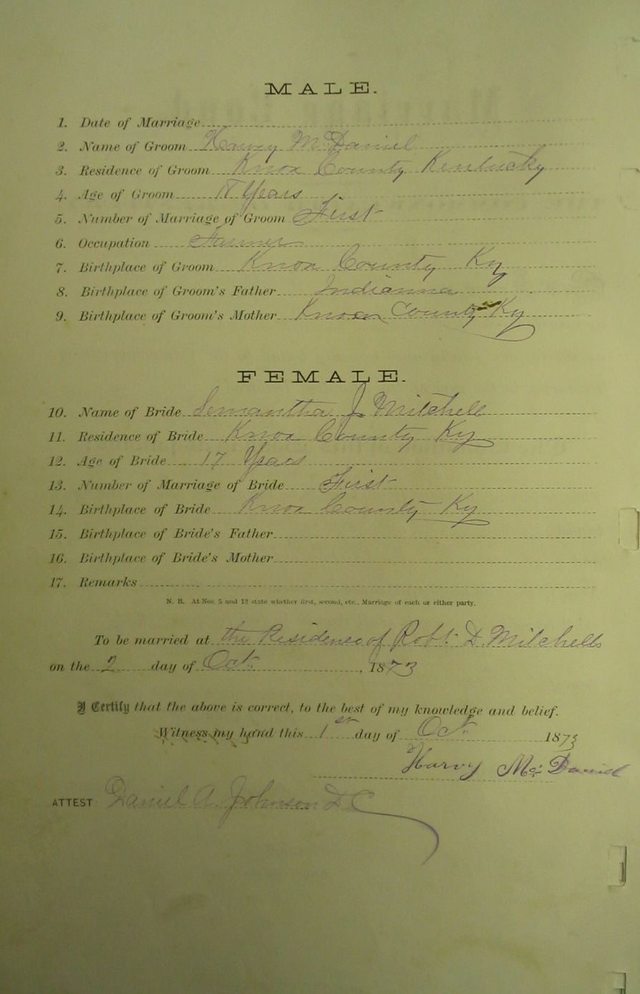 MALE.
1. Date of Marriage
2. Name of Groom Harvy McDaniel
3. Residence of Groom Knox County Kentucky
4. Age of Groom 18 Years
5. Number of Marriage of Groom First
6. Occupation Farmer
7. Birthplace of Groom Knox County Ky
8. Birthplace of Groom's Father Indianna
9. Birthplace of Groom's Mother Knox County Ky
FEMALE.
10. Name of Bride Semantha J Mitchell
11. Residence of Bride Knox County Ky
12. Age of Bride 17 Years
13. Number of Marriage of Bride First
14. Birthplace of Bride Knox County Ky
15. Birthplace of Bride's Father
16. Birthplace of Bride's Mother
17. Remarks
N. B. At Nos. 5 and 13 state whether first, second, etc., Marriage of each or either party.
To be married at the Residence of Robt. D. Mitchells
on the 2 day of Oct. 1873
I Certify that the above is correct, to the best of my knowledge and belief.
Witness my hand this 1st day of Oct. 1873
Harvy Mc Daniel
ATTEST Daniel A. Johnson D C